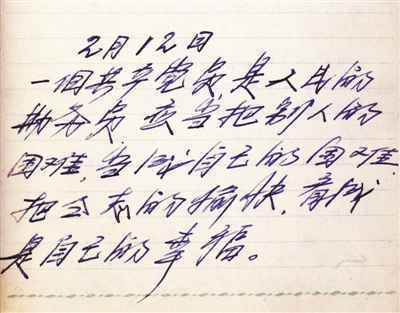 2月12日
一个共产党员是人民的
勤务员，应当把别人的
困难，当成自己的困难，
把同志的愉快，看成
是自己的幸福。